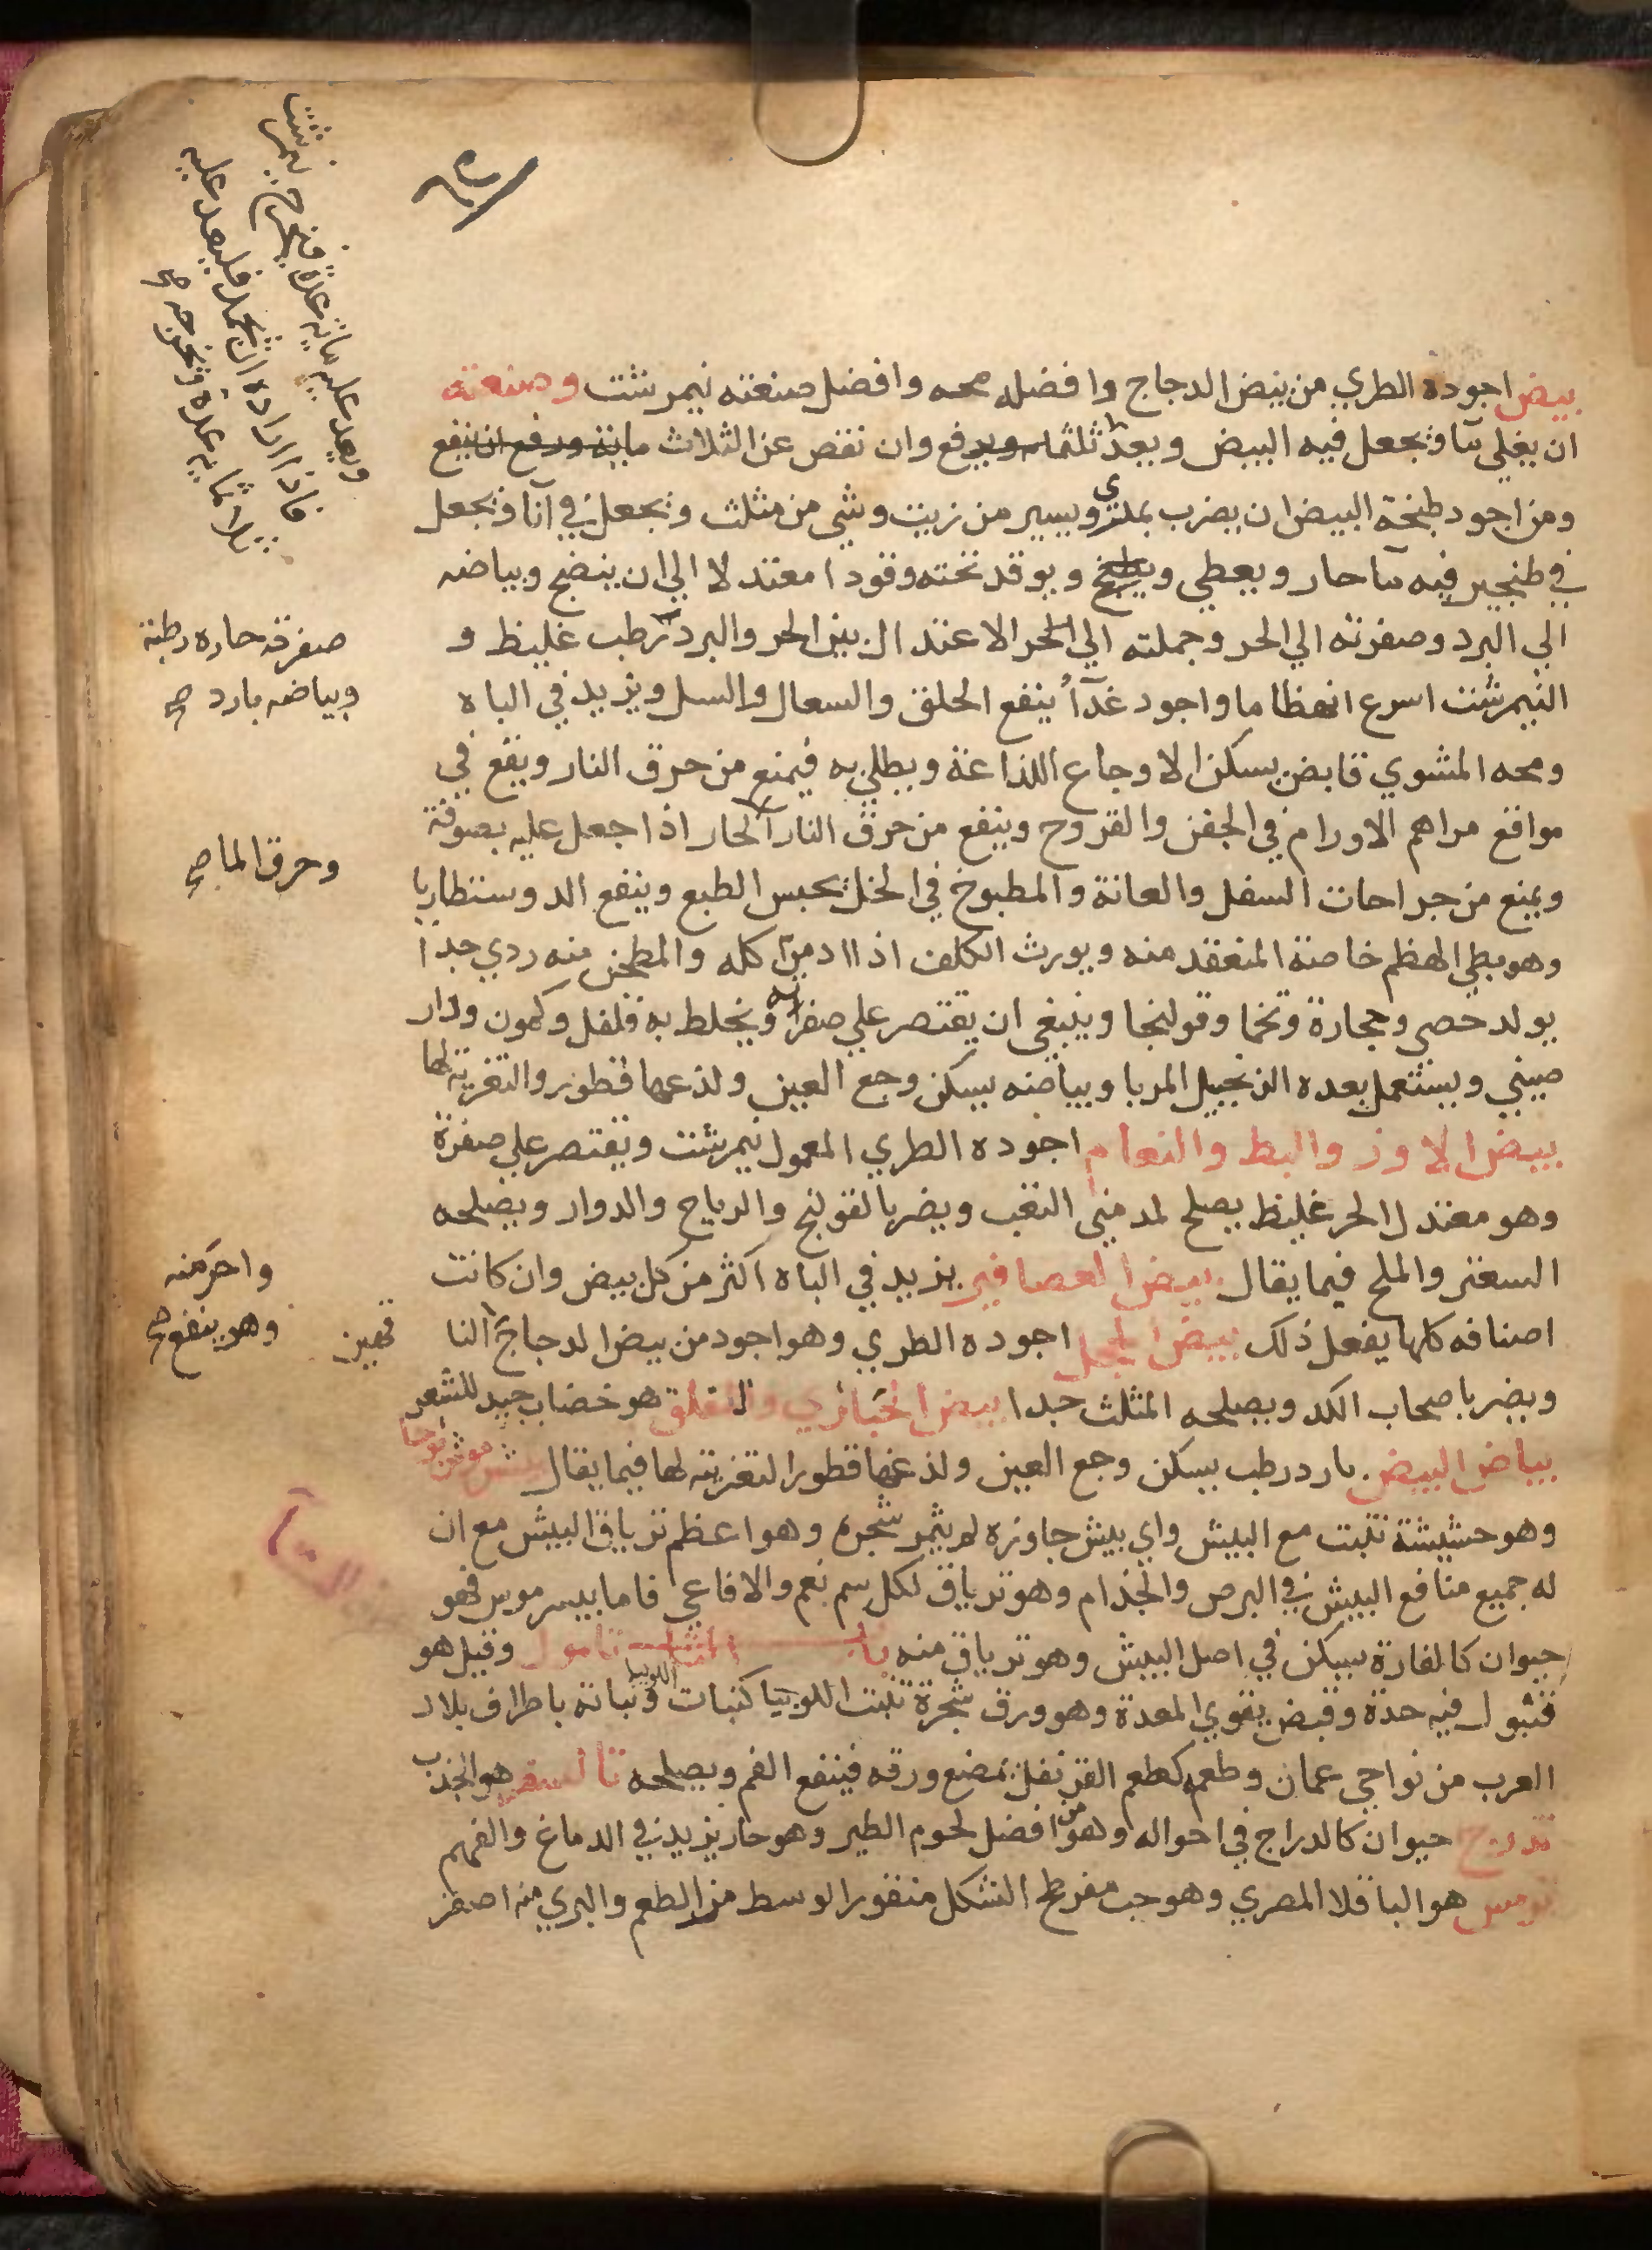 بيض اجوده الطري من بيض الدجاج وافضله محه وافضل صنعته نيمرشت وصنعته
ان يغلي مآ ويجعل فيه البيض ويعد ثلثماـ ويرفع وان نقص عن الثلاث ماية ورفع انتفع
ومن اجود طبخة البيض ان يضرب بملري ويسير من زيت وشي من مثلث ويجعل في آنا ويجعل
في طنجير فيه مآ حار ويغطي ويطبخ ويوقد تحته وقودا معتدلا الي ان ينضج وبياضه
الي البرد وصفرته الي الحر وجملته الي الحر الاعتدال بين الحر والبرد رطب غليظ و
النيمرشت اسرع انهظاما واجود غدآ ينفع الحلق والسعال والسل ويزيد في الباه
ومحه المشوي قابض يسكن الاوجاع اللذاعة ويطلي به فيمنع من حرق النار ويقع في
مواقع مراهم الاورام في الجفن والقروح وينفع من حرق النار الحار اذا جعل عليه بصوفة
ويمنع من جراحات السفل والعانة والمطبوخ في الخل يحبس الطبع وينفع الدوسنطاريا
وهو بطي الهظم خاصة المنعقد منه ويورث الكلف اذا ادمن اكله والمطجن منه ردي جدا
يولد حصي وحجارة وتخما وقولنجا وينبغي ان يقتصر علي صفرته ويخلط به فلفل وكمون ودار
صيني ويستعمل بعده الزنجبيل المربا وبياضه يسكن وجع العين ولذعها قطور والتغريته لها
بيض الاوز والبط والنعام اجوده الطري المعمول نيمرشت ويقتصر علي صفرة
وهو معتدل الحر غليظ يصلح لمدمني التعب ويضر بالقولنج والرياح والدوار ويصلحه
السعتر والملح فيما يقال بيض العصافير يزيد في الباه اكثر من كل بيض وان كانت
اصنافه كلها يفعل ذلك بيض الحجل اجوده الطري وهو اجود من بيض الدجاج النا
ويضر باصحاب الكد ويصلحه المثلث جدا بيض الحباري واللقلق هو خضاب جيد للشعر
بياض البيض بارد رطب يسكن وجع العين ولذعها قطورا لتغريته لها فيما يقال بيش موش بوحا
وهو حشيشة تنبت مع البيش واي بيش جاوزه لم يثمر شجره وهو اعظم ترياق البيش مع ان
له جميع منافع البيش في البرص والجذام وهو ترياق لكل سم نعم والافاعي فاما بيسر موس فهو
حيوان كالفارة يسكن في اصل البيش وهو ترياق منه باب التآ تامول وقيل هو
قنبول فيه حدة وقبض يقوي المعدة وهو ورق شجرة تنبت اللوبيا كنبات اللوبيا ونباته باطراف بلاد
العرب من نواحي عمان وطعمه كطعم القرنفل يمضغ ورقه فينفع الفم ويصلحه تا لسفر هو الجذب
تدرج حيوان كالدراج في احواله وهو من افضل لحوم الطير وهو حار يزيد في الدماغ والفهم
ترمس هو الباقلا المصري وهو حب مفرطح الشكل منقور الوسط مر الطعم والبري منه اصغر
ويعد عليه ماية عدة فيخرج نيمرشت
فاذا اراده ان يجمد فليعد عليه
ثلاثماية عدة ويخرجه صح
صفرته حاره رطبة
وبياضه بارد صح
وحرق الما صح
واحر منه
وهو ينفع صح
قهين
التآ